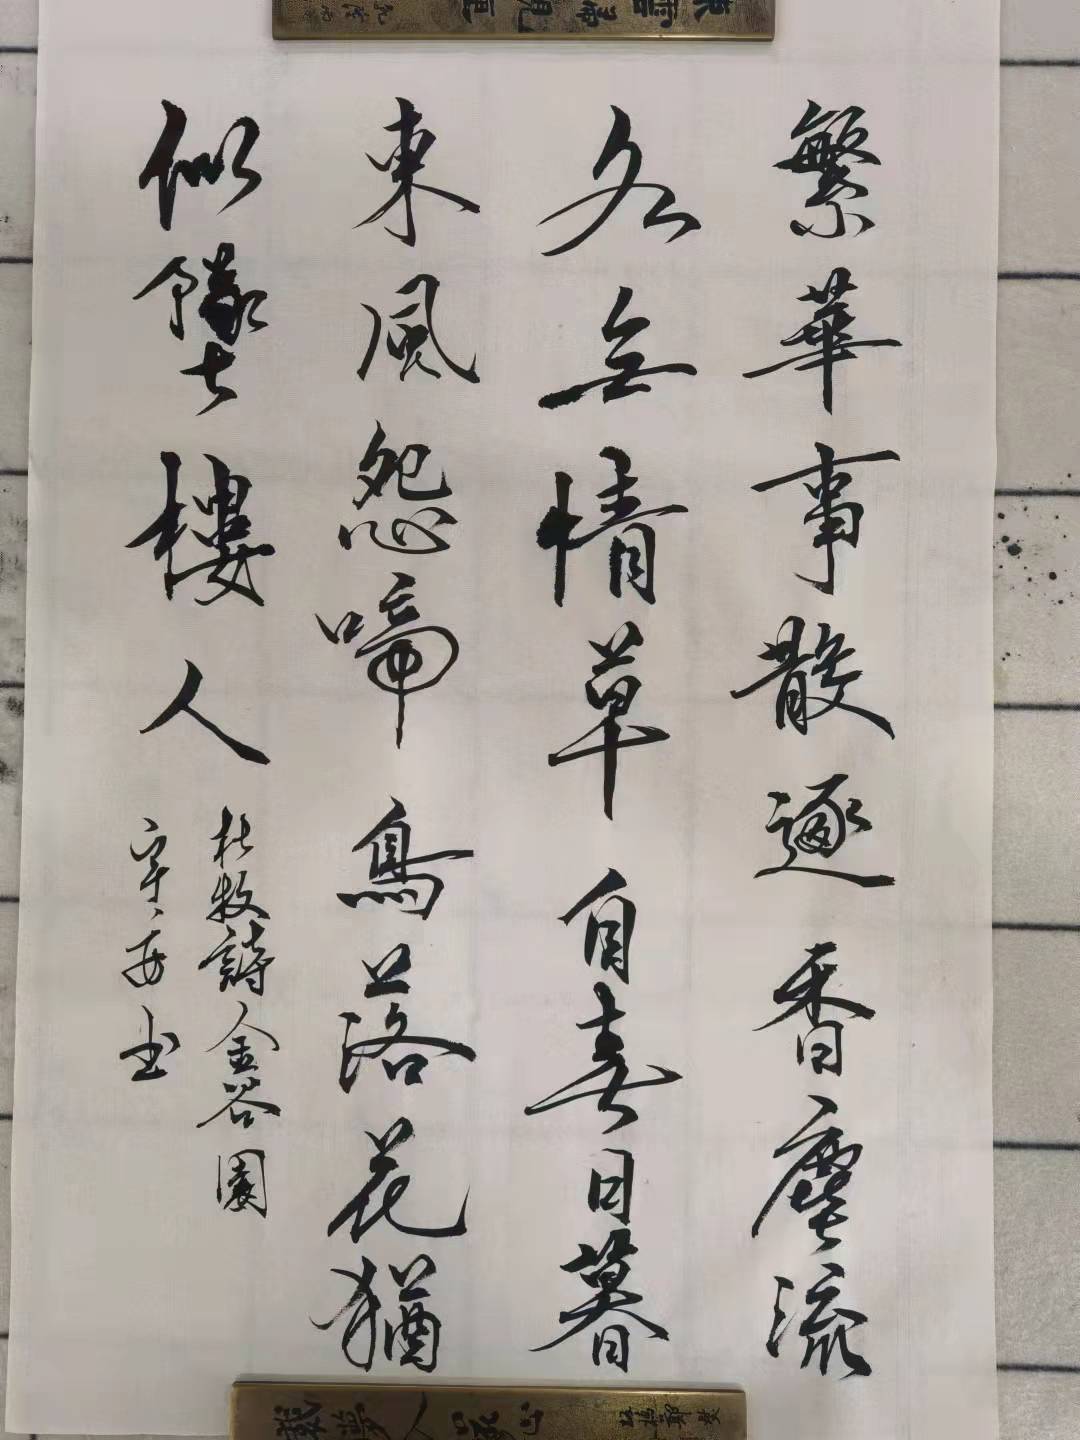 繁華事散逐香塵流
水無情草自春日暮
東風怨啼鳥落花猶
似墜樓人
杜牧詩金谷園